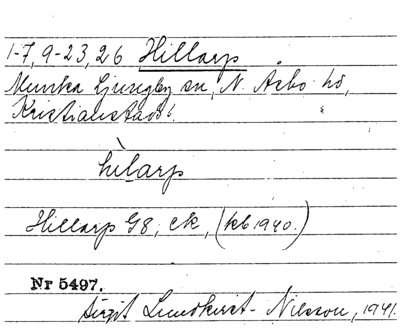 1-7, 9-23, 26 Hillarp
Munka Ljungby sn, N. Åsbo hd,
Kristianstads l.
hìlarp
Hillarp G8, ek, (kb 1940.)
Nr 5497.
Birgit Lundkvist-Nilsson, 1941.